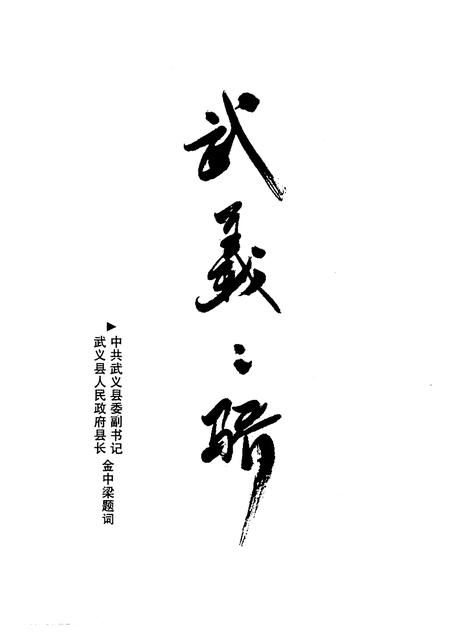 武義之驕
▶中共武义县委副书记
武义县人民政府县长
金中梁题词